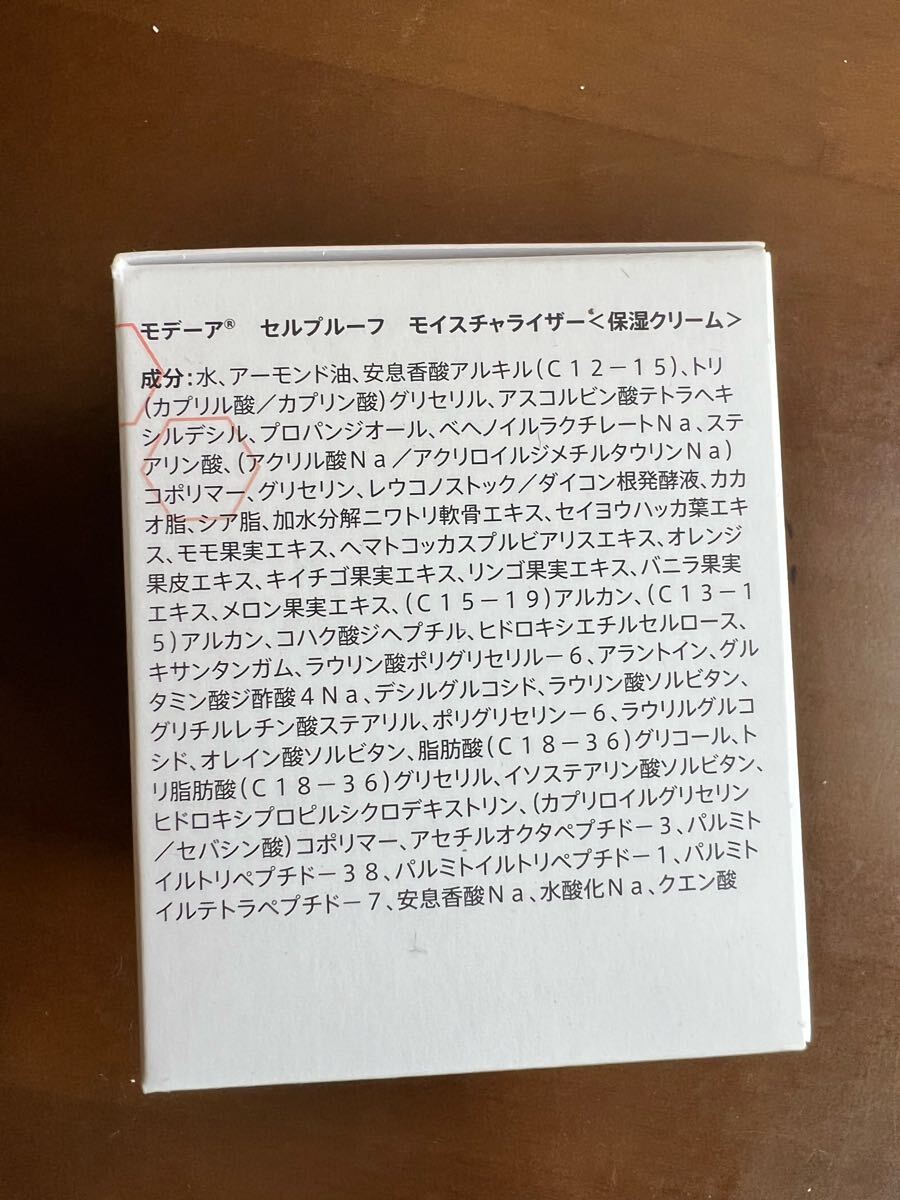 モデーア® セルプルーフ モイスチャライザー<保湿クリーム>
成分:水、アーモンド油、安息香酸アルキル(C12-15)、トリ
(カプリル酸/カプリン酸)グリセリル、アスコルビン酸テトラヘキ
シルデシル、プロパンジオール、ベヘノイルラクチレートNa、ステ
アリン酸、(アクリル酸Na/アクリロイルジメチルタウリンNa)
コポリマー、グリセリン、レウコノストック/ダイコン根発酵液、カカ
オ脂、シア脂、加水分解ニワトリ軟骨エキス、セイヨウハッカ葉エキ
ス、モモ果実エキス、ヘマトコッカスプルビアリスエキス、オレンジ
果皮エキス、キイチゴ果実エキス、リンゴ果実エキス、バニラ果実
エキス、メロン果実エキス、(C15-19)アルカン、(C13-1
5)アルカン、コハク酸ジヘプチル、ヒドロキシエチルセルロース、
キサンタンガム、ラウリン酸ポリグリセリル-6、アラントイン、グル
タミン酸ジ酢酸4Na、デシルグルコシド、ラウリン酸ソルビタン、
グリチルレチン酸ステアリル、ポリグリセリン-6、ラウリルグルコ
シド、オレイン酸ソルビタン、脂肪酸(C18-36)グリコール、ト
リ脂肪酸(C18-36)グリセリル、イソステアリン酸ソルビタン、
ヒドロキシプロピルシクロデキストリン、(カプリロイルグリセリン
/セバシン酸)コポリマー、アセチルオクタペプチド-3、パルミト
イルトリペプチド-38、パルミトイルトリペプチド-1、パルミト
イルテトラペプチド-7、安息香酸Na、水酸化Na、クエン酸